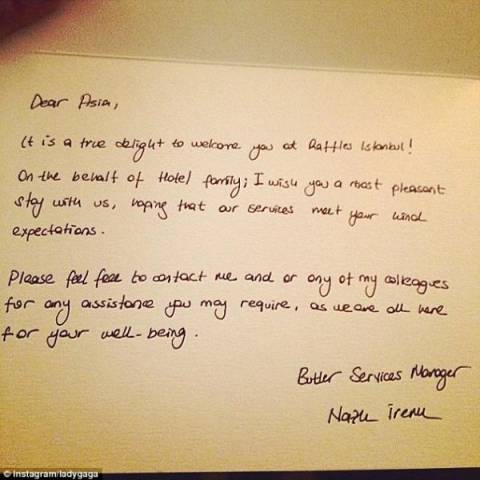 Dear Asia,
It is a true delight to welcome you at Raffles Istanbul!
On the behalf of Hotel family; I wish you a most pleasant
stay with us, hoping that our services meet your kind
expectations.
Please feel free to contact me and or any of my colleagues
for any assistance you may require, as we are all here
for your well-being.
Butler Services Manager
© Instagram/ladygaga